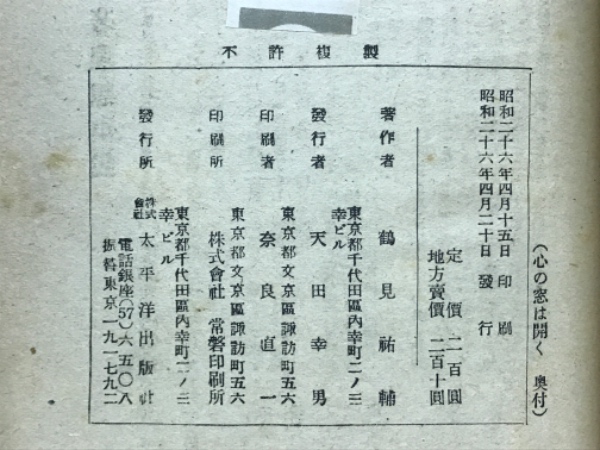 不許複製
(心の窓は開く 奥付)
昭和二十六年四月十五日 印刷
昭和二十六年四月二十日 發行
定價 二百圓
地方賣價 二百十圓
著作者 鶴見祐輔
東京都千代田區内幸町二ノ三
幸ビル
發行者 天田幸男
東京都文京區諏訪町五六
印刷者 奈良直一
東京都文京區諏訪町五六
印刷所 株式會社 常磐印刷所
東京都千代田區内幸町二ノ三
幸ビル
發行所 株式會社 太平洋出版社
電話銀座(57)六五〇八
振替東京一九一七九二